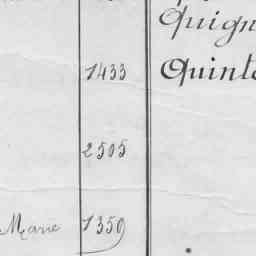 Quign
1433 Quinte
2505
Marie 1359